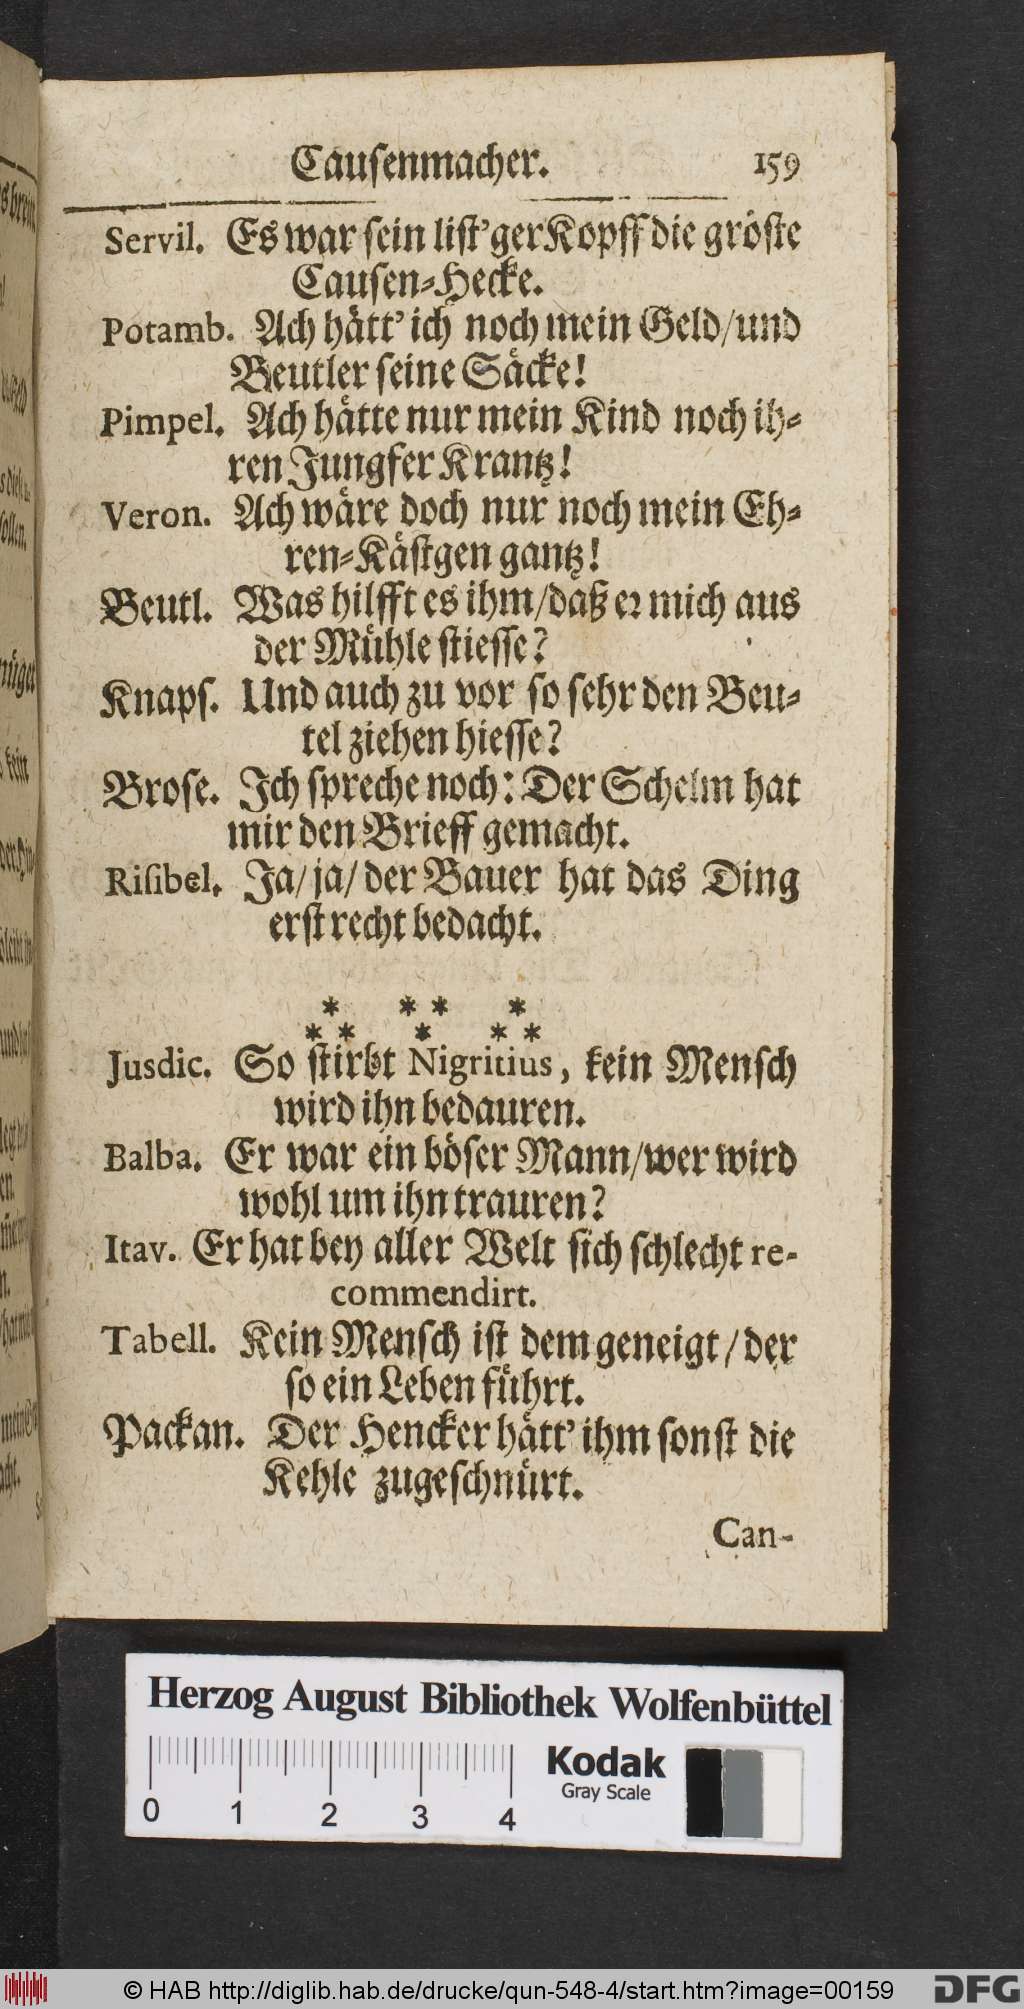 Causenmacher. 159
Servil. Es war sein list'ger Kopff die gröste
Causen-Hecke.
Potamb. Ach hätt' ich noch mein Geld/und
Beutler seine Säcke!
Pimpel. Ach hätte nur mein Kind noch ih-
ren Jungfer Krantz!
Veron. Ach wäre doch nur noch mein Eh-
ren-Kästgen gantz!
Beutl. Was hilfft es ihm/daß er mich aus
der Mühle stiesse?
Knaps. Und auch zu vor so sehr den Beu-
tel ziehen hiesse?
Brose. Ich spreche noch: Der Schelm hat
mir den Brieff gemacht.
Risibel. Ja/ja/der Bauer hat das Ding
erst recht bedacht.
* * * *
* * * * *
Jusdic. So stirbt Nigritius, kein Mensch
wird ihn bedauren.
Balba. Er war ein böser Mann/wer wird
wohl um ihn trauren?
Itav. Er hat bey aller Welt sich schlecht re-
commendirt.
Tabell. Kein Mensch ist dem geneigt/der
so ein Leben führt.
Packan. Der Hencker hätt' ihm sonst die
Kehle zugeschnürt.
Can-
Herzog August Bibliothek Wolfenbüttel
Kodak
Gray Scale
0 1 2 3 4
© HAB http://diglib.hab.de/drucke/qun-548-4/start.htm?image=00159
DFG